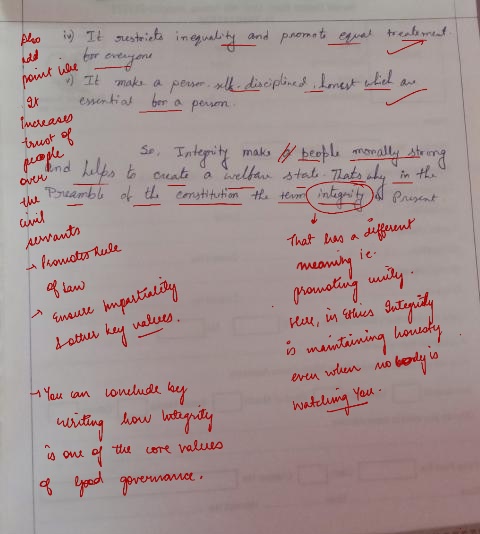 iv) It restricts inequality and promote equal treatement
for everyone
v) It make a person self disciplined, honest which are
essential for a person.
So, Integrity make people morally strong
and helps to create a welfare state. That's why in the
Preamble of the constitution the term integrity is Present
Also
add
point like
It
increases
trust of
people
over
the
civil
servants
→ Promotes Rule
of Law
→ Ensure Impartiality
& other key values.
→ You can conclude by
writing how Integrity
is one of the core values
of Good governance.
That has a different
meaning ie.
promoting unity.
Here, in Ethics Integrity
is maintaining honesty
even when nobody is
watching You.